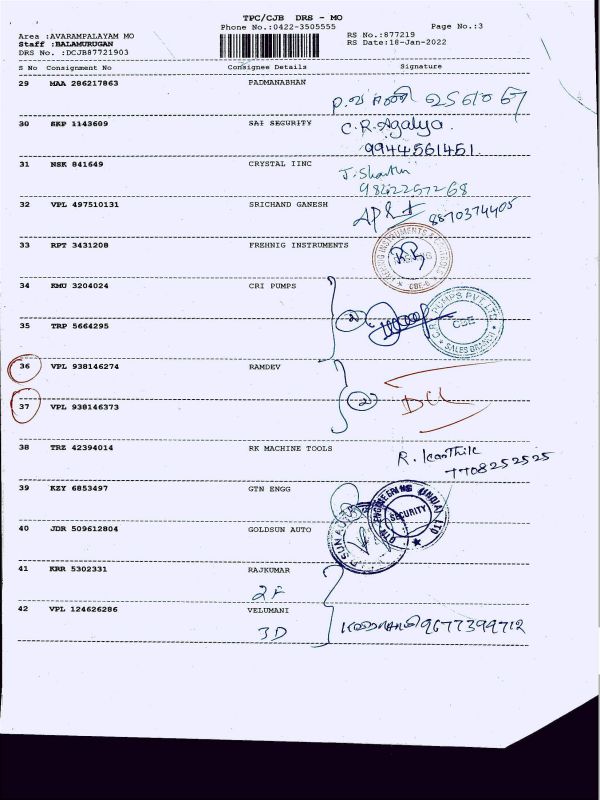 TPC/CJB DRS - MO
Phone No.:0422-3505555 Page No.:3
Area :AVARAMPALAYAM MO RS No.:877219
Staff :BALAMURUGAN RS Date:18-Jan-2022
DRS No. :DCJB87721903
S No Consignment No Consignee Details Signature
29 MAA 286217863 PADMANABHAN
30 SKP 1143609 SAI SECURITY C.R.Agalya.
9944561451
31 NSK 841649 CRYSTAL IINC
9842257268
32 VPL 497510131 SRICHAND GANESH 8870374405
33 RPT 3431208 FREHNIG INSTRUMENTS
FREHNIG INSTRUMENTS & CONTROLS
CBE-6
34 KMU 3204024 CRI PUMPS
2
C.R.I. PUMPS PVT LTD
CBE
SALES BRANCH
35 TRP 5664295
36 VPL 938146274 RAMDEV
2
37 VPL 938146373
38 TRZ 42394014 RK MACHINE TOOLS R. Karthik
7708252525
39 KZY 6853497 GTN ENGG
GTN ENGINEERING (INDIA) LTD
SECURITY
40 JDR 509612804 GOLDSUN AUTO
41 KRR 5302331 RAJKUMAR
2F
42 VPL 124626286 VELUMANI 9677399712
3D